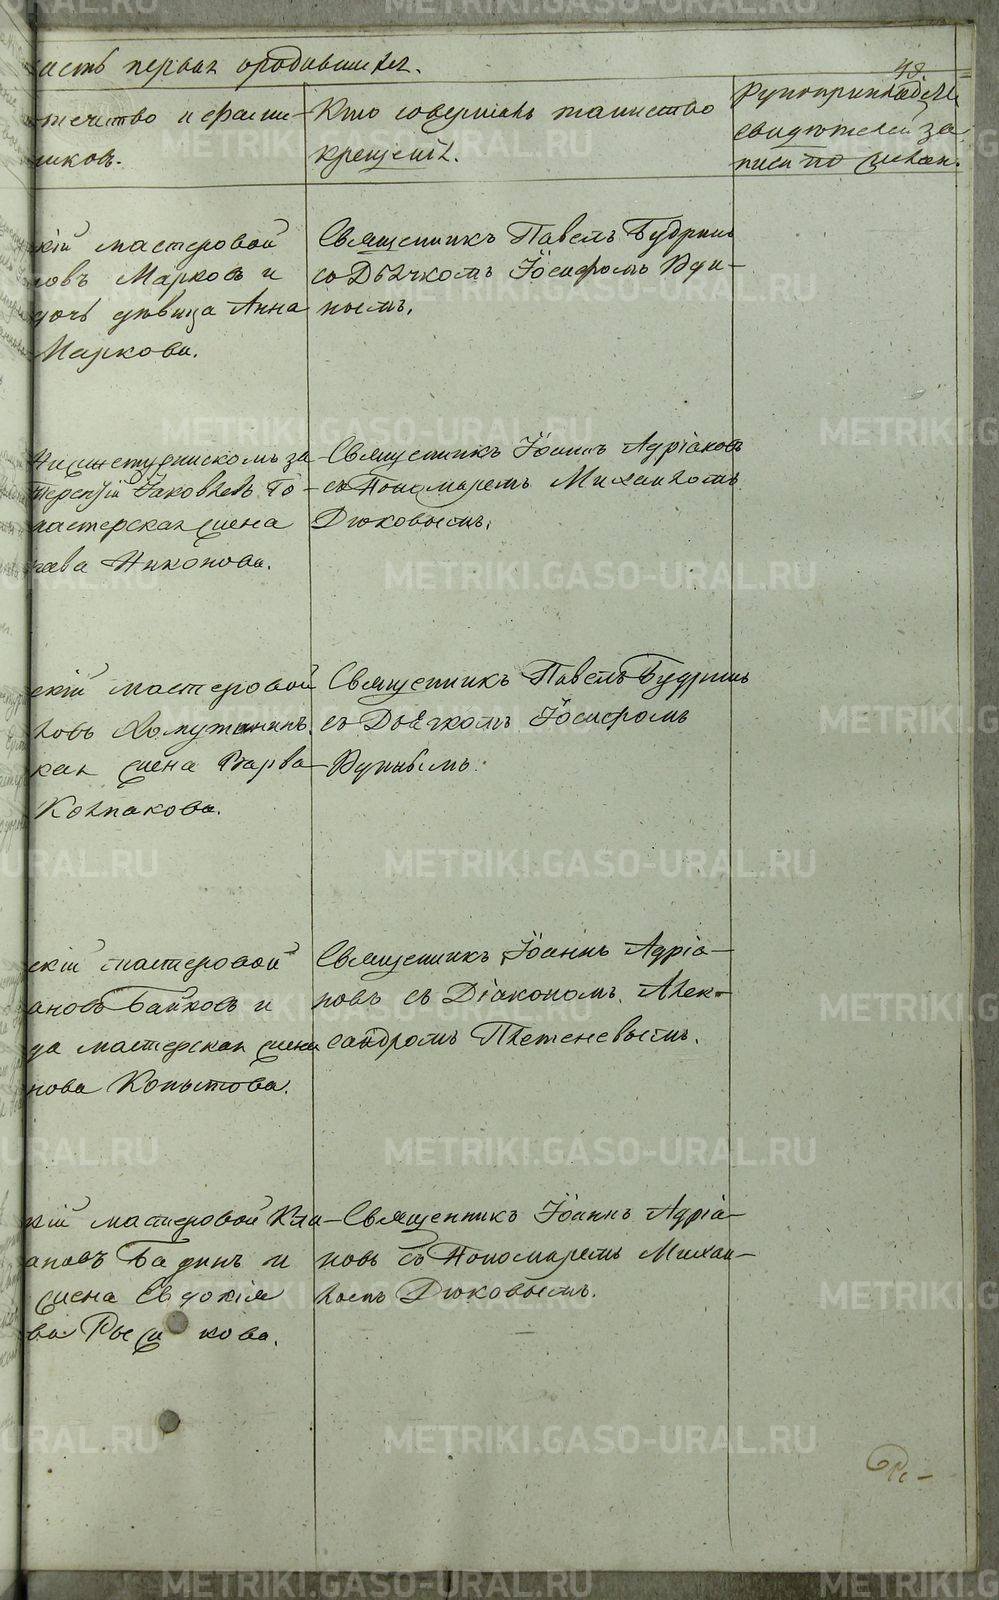 асть первая о родившихся.
48.
течство и фами-
ликов.
Кто совершалъ таинство
крещенія.
Рукоприкладств
свидѣтелей за
писи по желан.
кій мастеровой
ковъ Марковъ и
дочь дѣвица Анна
Маркова.
Священникъ Павелъ Будринъ
со Дьячкомъ Іосифомъ
нымъ.
Нижнетуринскомъ за
Терентій Яковлевъ Го-
мастерская жена
Никонова.
Священникъ Іоаннъ Адріановъ
съ Пономаремъ Михаиломъ
Дюковымъ.
скій мастеровой
ловъ Хомутининъ.
кая жена Варва
Колпакова.
Священникъ Павелъ Будринъ
съ Дьячкомъ Іосифомъ
скій мастеровой
ановъ Байковъ и
да мастерская жена
нова Копытова.
Священникъ Іоаннъ Адріа-
новъ съ Діакономъ Алек-
сандромъ Плетеневымъ.
кій мастеровой
ановъ Бадинъ и
жена Евдокія
ва Рыжкова.
Священникъ Іоаннъ Адріа-
новъ съ Пономаремъ Михаи-
ломъ Дюковымъ.
METRIKI.GASO-URAL.RU